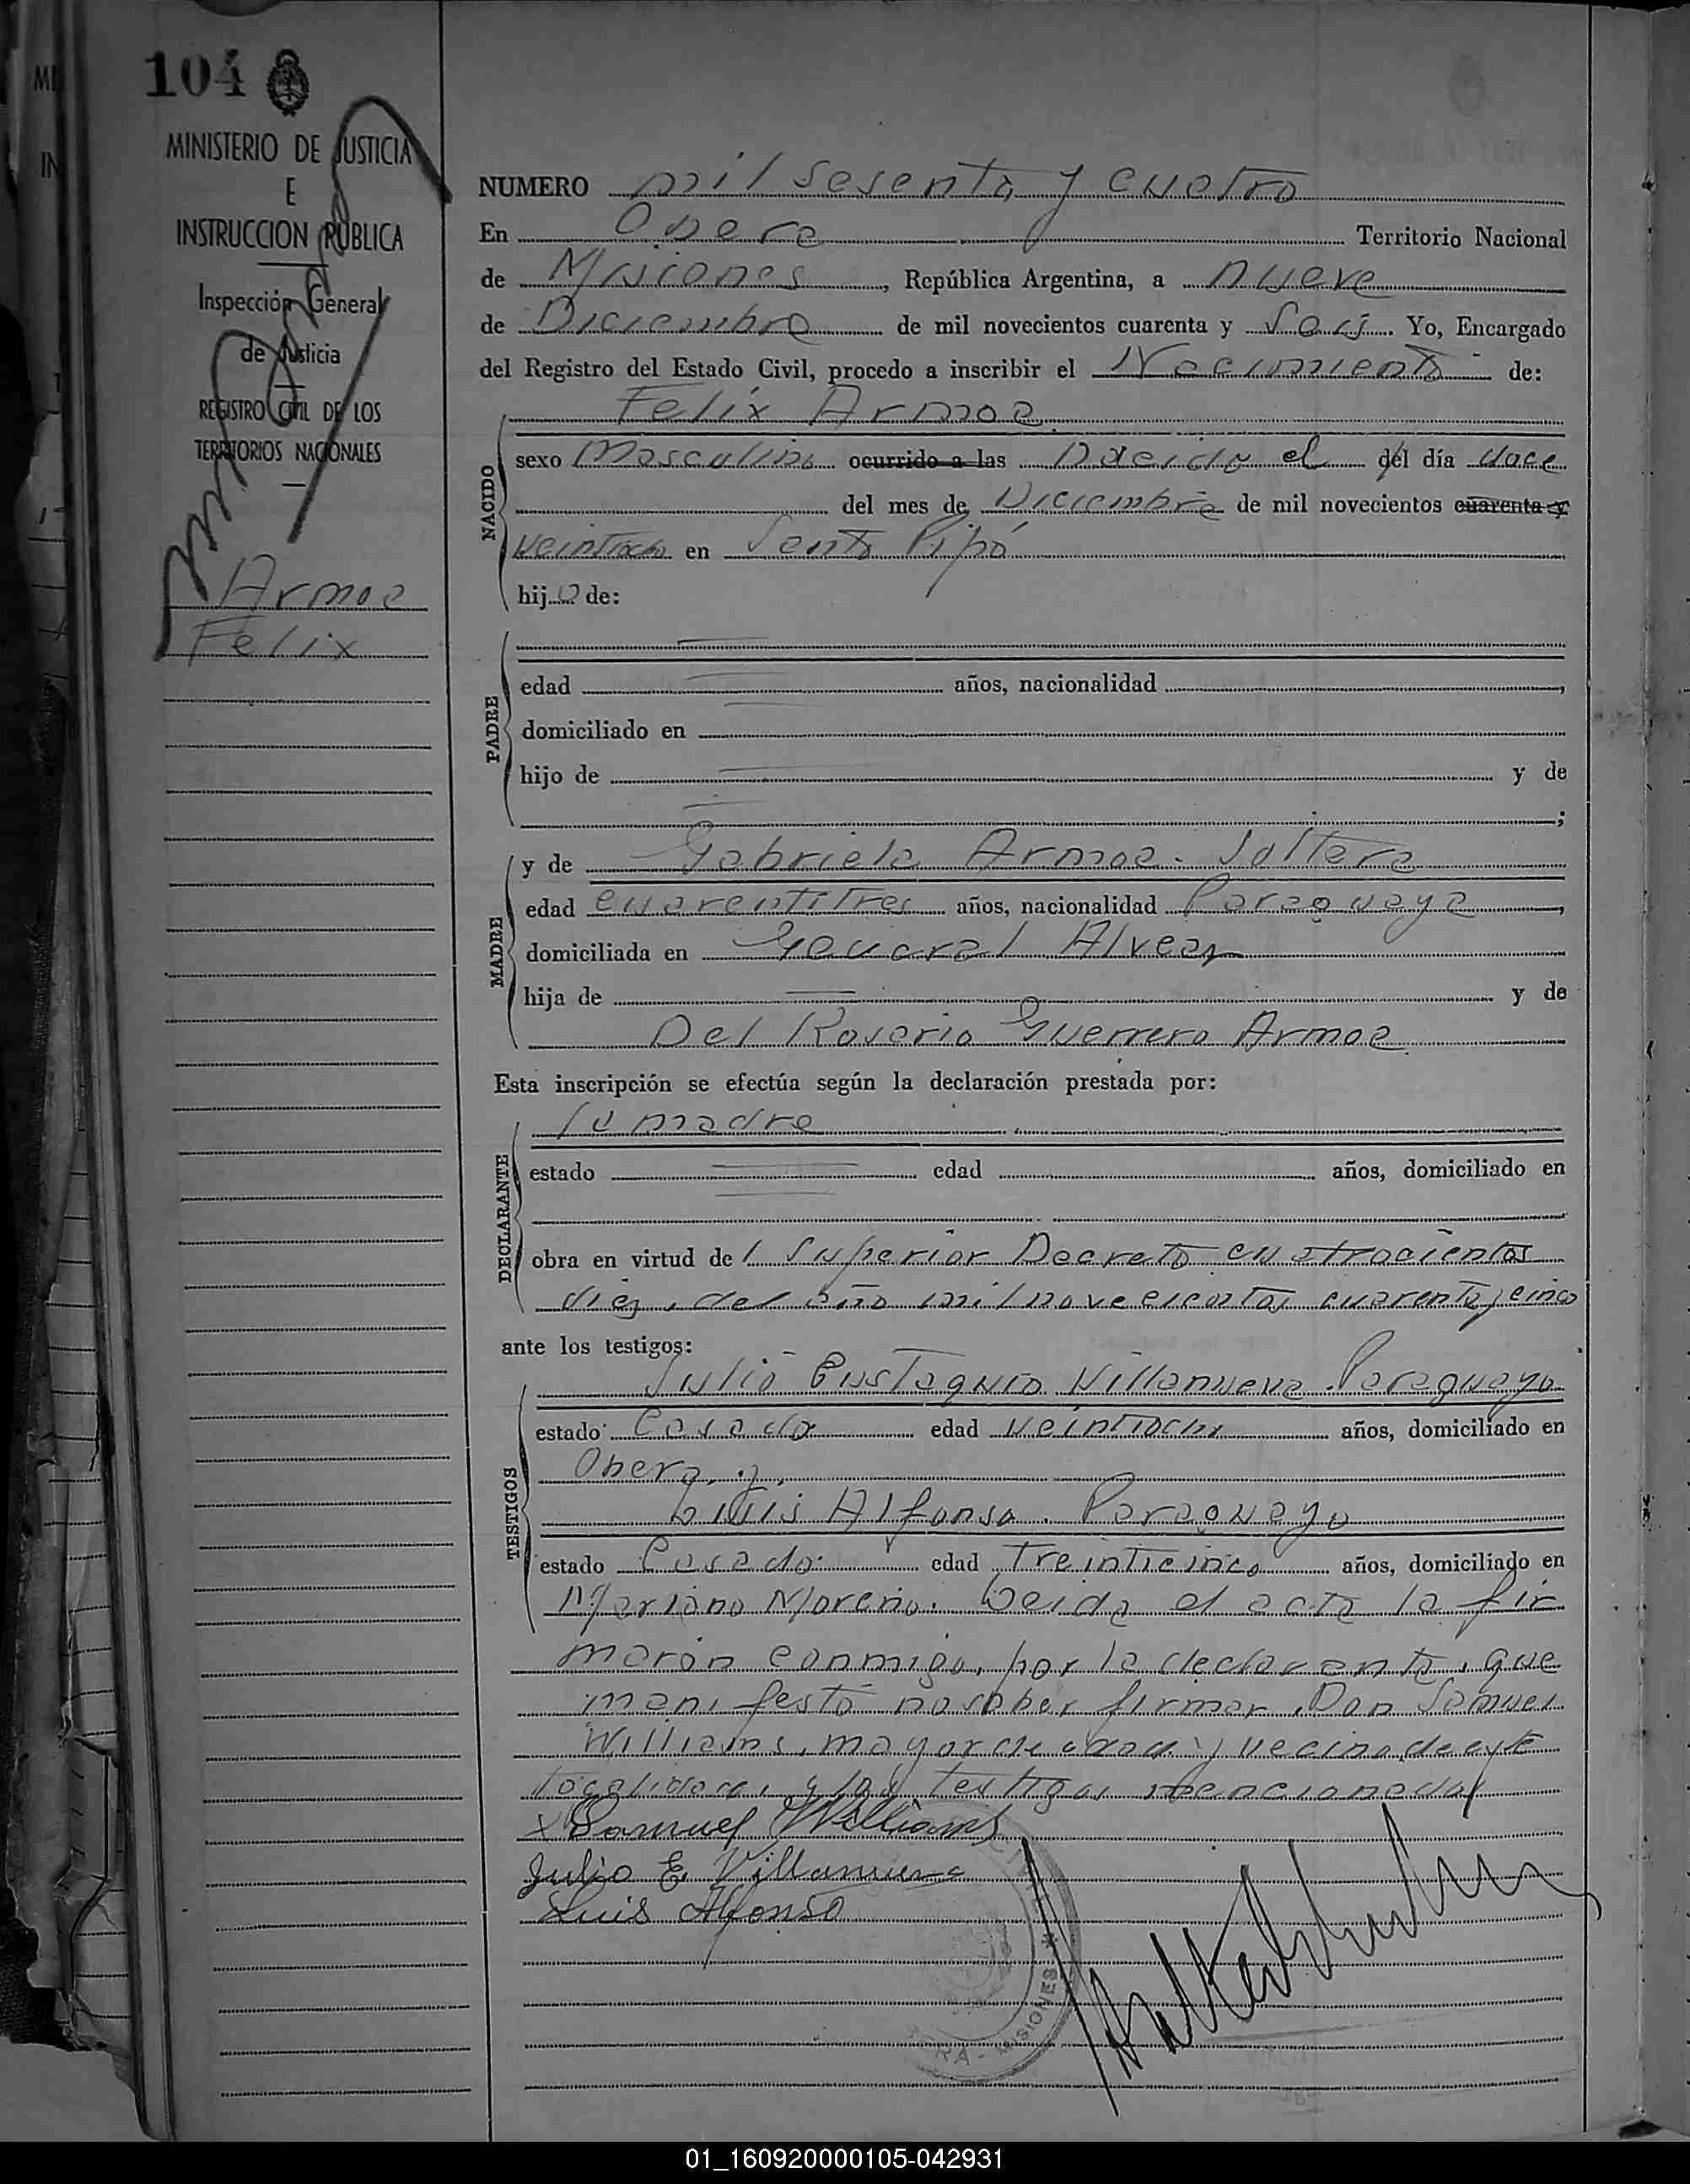 104
MINISTERIO DE JUSTICIA
E
INSTRUCCION PUBLICA
Inspección General
de Justicia
REGISTRO CIVIL DE LOS
TERRITORIOS NACIONALES
Armoa
Felix
NUMERO mil sesenta y cuatro
En Obera Territorio Nacional
de Misiones, República Argentina, a nueve
de Diciembre de mil novecientos cuarenta y seis. Yo, Encargado
del Registro del Estado Civil, procedo a inscribir el Nacimiento de:
NACIDO
Felix Armoa
sexo Masculino ocurrido a las Nacido el del día doce
del mes de Diciembre de mil novecientos cuarenta y
veintiocho en Santo Pipó
hijo de:
PADRE
edad años, nacionalidad ,
domiciliado en
hijo de y de
;
MADRE
y de Gabriela Armoa. Soltera
edad cuarentitres años, nacionalidad Paraguaya,
domiciliada en General Alvear
hija de y de
Del Rosario Guerrero Armoa
Esta inscripción se efectúa según la declaración prestada por:
DECLARANTE
la madre
estado edad años, domiciliado en
obra en virtud del Superior Decreto cuatrocientos
diez, del año mil novecientos cuarenta y cinco
ante los testigos:
TESTIGOS
Julio Eustaquio Villanueva. Paraguayo
estado Casado edad veintiocho años, domiciliado en
Obera, y,
Luis Alfonso. Paraguayo
estado Casado edad treinticinco años, domiciliado en
Mariano Moreno. Leida el acta la fir
maron conmigo, por la declarante, que
manifestó no saber firmar, Don Samuel
Williams, mayor de edad y vecino de esta
localidad, y los testigos mencionados
x Samuel Williams
Julio E. Villanueva
Luis Alfonso
MISIONES
01_160920000105-042931